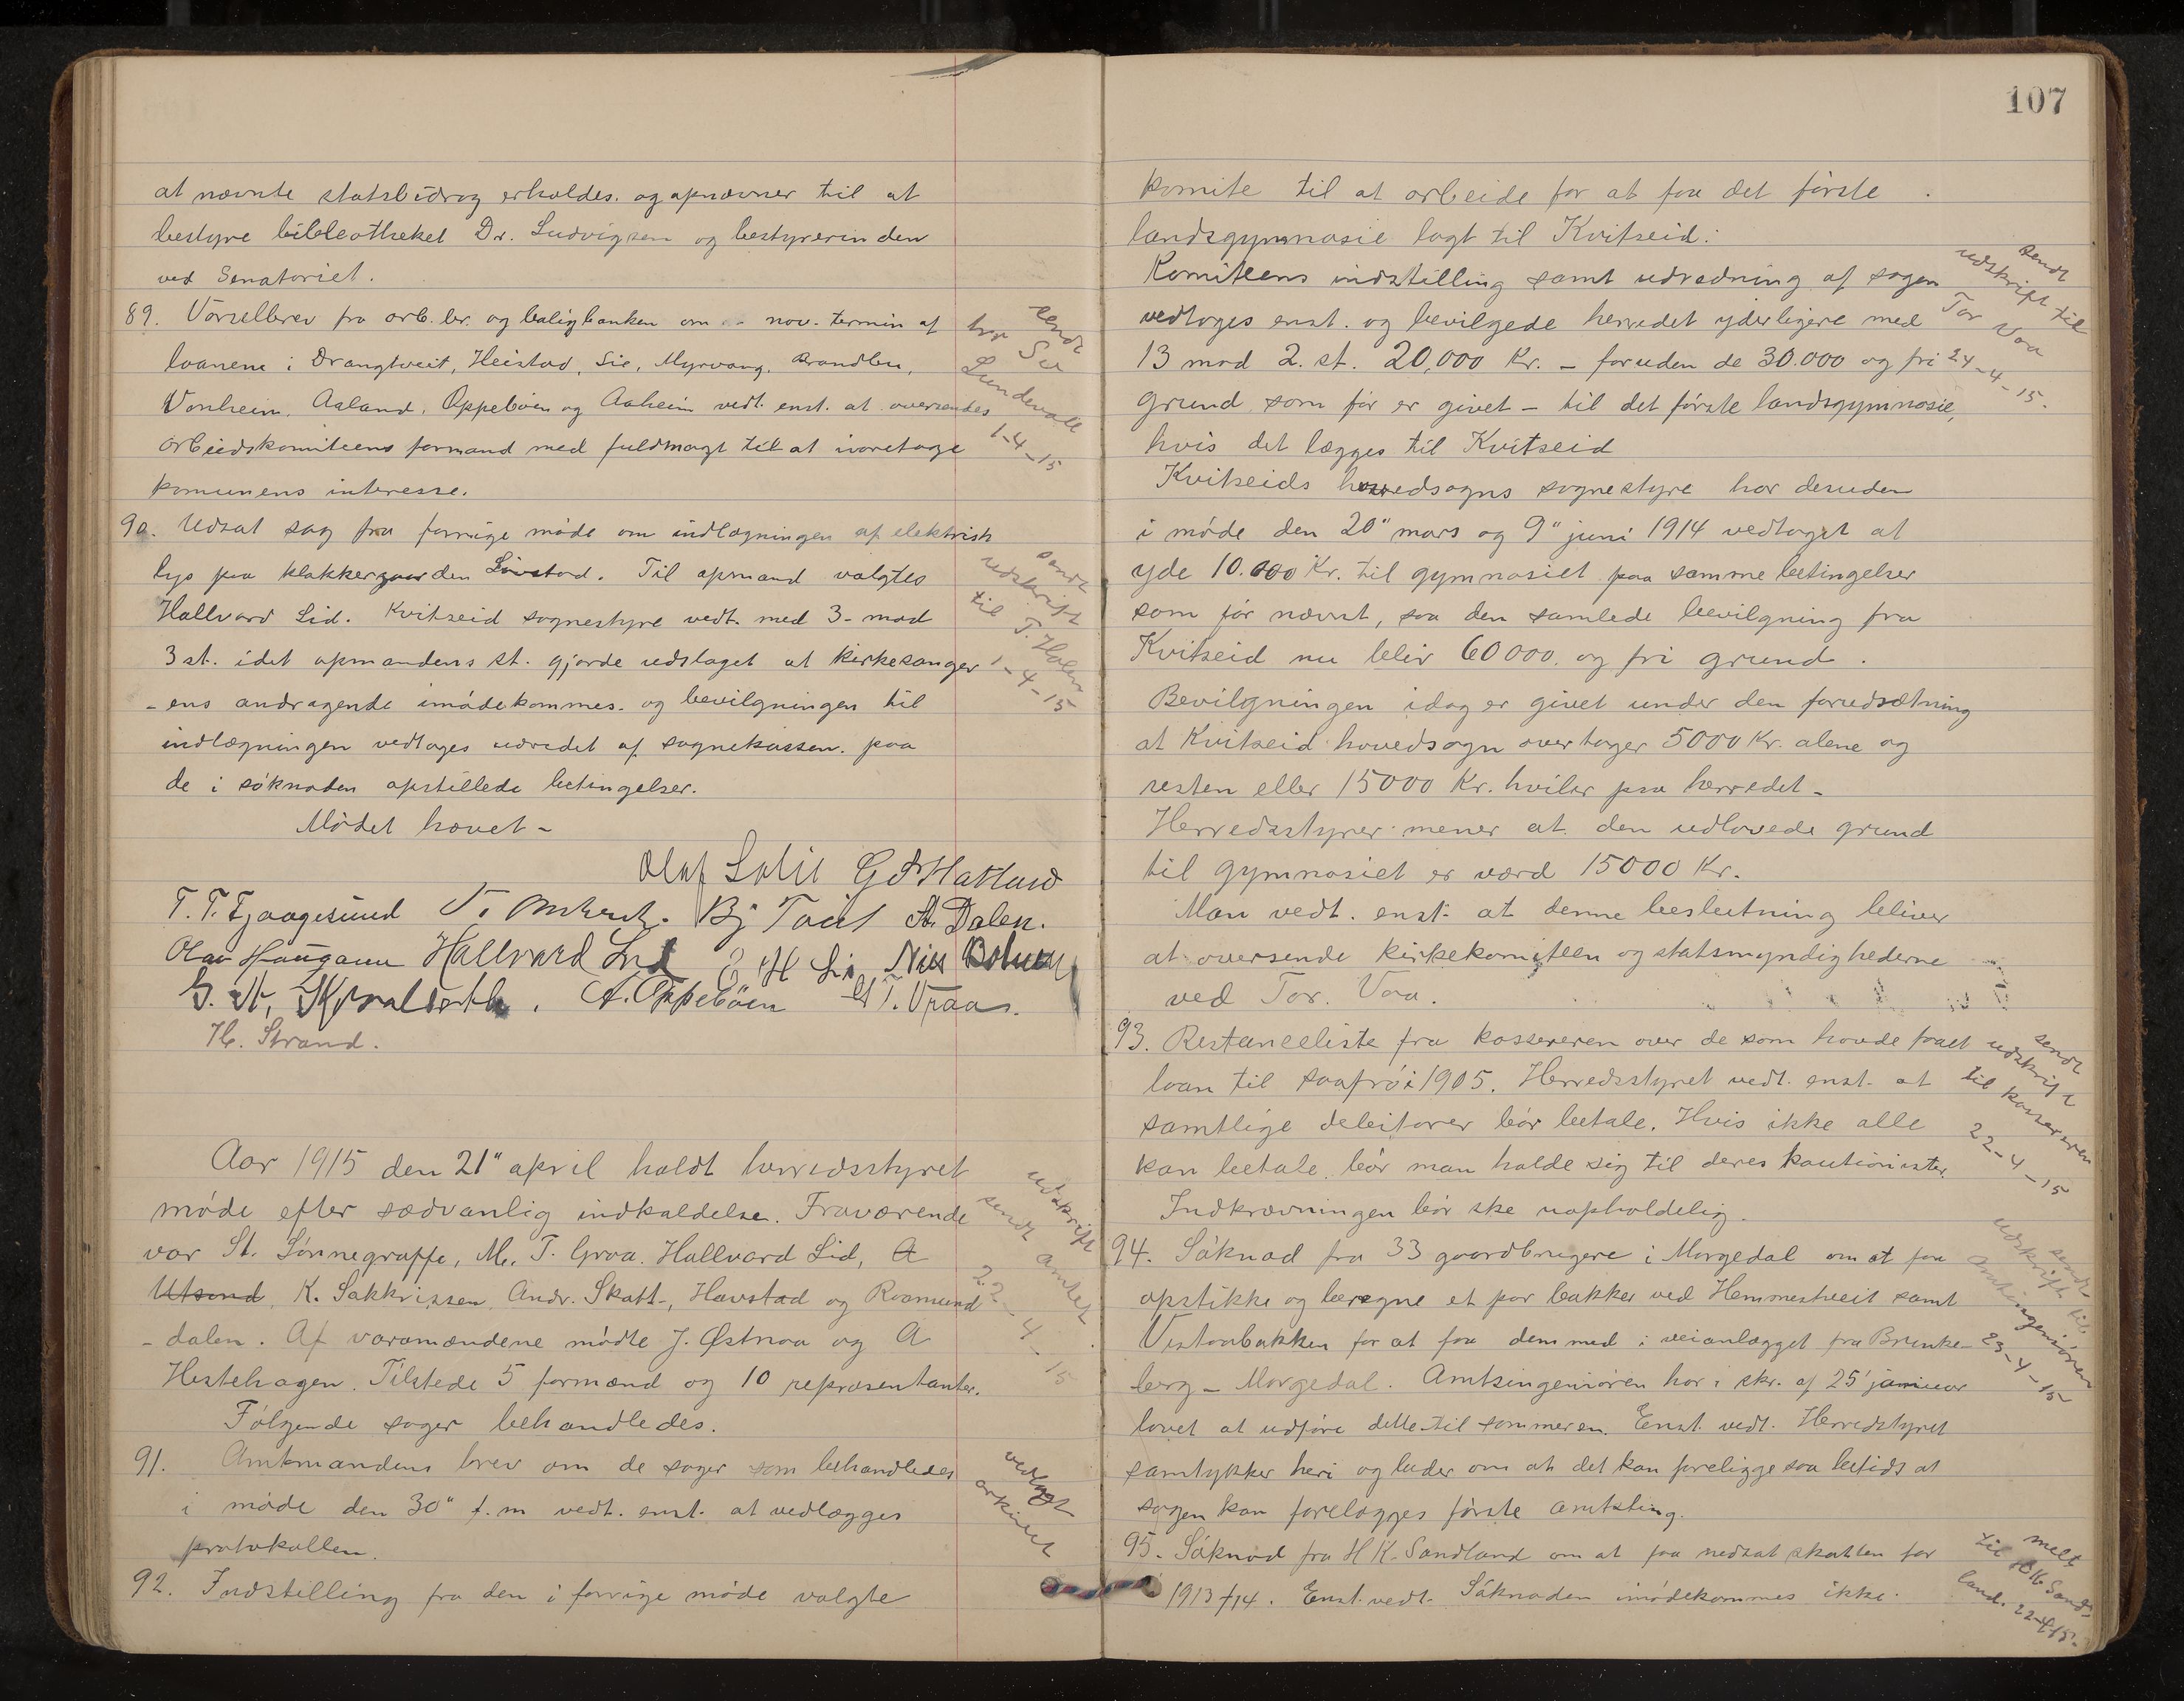 at nævnte statsbidrag erholdes. og opnævner til at
bestyre bibleotheket Dr. Ludvigsen og bestyrerinden
ved Sanatoriet.
89. Varselbrev fra arb. br. og boligbanken om nov. termin af
laanene i Drangtveit, Heistad, Lie, Myrvang, Brandlien,
Vonheim, Aaland, Oppeböen og Aaheim vedt. enst. at oversendes
Arbeidskomiteens formand med fuldmagt til at ivaretage
komunens interesse.
sendt
hr
Lundevall
1-4-15
90. Udsat sag fra forrige møde om indlægningen af elektrisk
lys paa klokkergaarden Lövstad. Til opmand valgtes
Hallvard Lid. Kvitseid sognestyre vedt. med 3 mod
3 st. idet opmandens st. gjorde udslaget at kirkesanger
-ens andragende imødekommes. og bevilgningen til
indlægningen vedtages udredet af sognekassen. paa
de i søknaden opstillede betingelser.
sendt
udskrift
til T. Holen
1-4-15
Mødet hævet -
Olaf Solli G S Hatland
T. T. Fjaagesund Bj Tait A. Dalen.
Olav Haugann Hallvard Lid E H Li Nils Bakken
A. Oppebøen G T. Vraa.
H. Strand.
Aar 1915 den 21" april holdt herredsstyret
møde efter sædvanlig indkaldelse. Fraværende
var St. Sønnegraffe, M. T. Groa. Hallvard Lid, A
Utsund, K. Sakkrissen, Andr. Skatt-, Havstad og Roamund
-dalen. Af varamændene mødte J. Østnaa og A
Hestehagen. Tilstede 5 formænd og 10 repræsentanter.
Følgende sager behandledes.
udskrift
sendt amtet
22-4-15
91. Amtmandens brev om de sager som behandledes
i møde den 30" f. m vedt. enst. at vedlægges
protokollen.
vedlagt
arkivet
92. Indstilling fra den i forrige møde valgte
107
komite til at arbeide for at faa det første
landsgymnasie lagt til Kvitseid:
Komiteens indstilling samt udredning af sagen
vedtoges enst. og bevilgede herredet yderligere med
13 mod 2. st. 20,000 Kr. - foruden de 30.000 og fri
grund som før er givet - til det første landsgymnasie,
hvis det lægges til Kvitseid
sendt
udskrift til
Tor Voa
24-4-15.
Kvitseids hovedsogns sognestyre har desuden
i møde den 20" mars og 9" juni 1914 vedtaget at
yde 10.000 Kr. til gymnasiet paa samme betingelser
som før nævnt, saa den samlede bevilgning fra
Kvitseid nu bliv 60000. og fri grund.
Bevilgningen idag er givet under den forudsætning
at Kvitseid hovedsogn overtager 5000 Kr. alene og
resten eller 15000 Kr. hviler paa herredet -
Herredsstyrer mener at den udlovede grund
til gymnasiet er værd 15000 Kr.
Man vedt. enst. at denne beslutning bliver
at oversende kirkekomiteen og statsmyndighederne
ved Tor. Voa.
93. Restanceliste fra kassereren over de som havde faaet
laan til saafrø i 1905. Herredsstyret vedt. enst. at
samtlige debitorer bør betale. Hvis ikke alle
kan betale bør man holde sig til deres kautionister.
Indkrævningen bør ske uopholdelig.
sendt
udskrift
til kassereren
22-4-15
94. Søknad fra 33 gaardbrugere i Morgedal om at faa
opstikke og beregne et par bakker ved Hemmestveit samt
Vistadbakken for at faa dem med i veianlægget fra Brunke-
berg - Morgedal. Amtsingeniøren har i skr. af 25' januar
lovet at udføre dette til sommeren. Enst. vedt. Herredstyret
samtykker heri og beder om at det kan foreligge saa betids at
sagen kan forelægges første amtsting.
sendt
udskrift til
Amtsingeniøren
23-4-15
95. Søknad fra H K. Sandland om at faa nedsat skatten for
1913/14. Enst. vedt. Søknaden imødekommes ikke.
melt
til H K Sand-
land. 22-4-15-